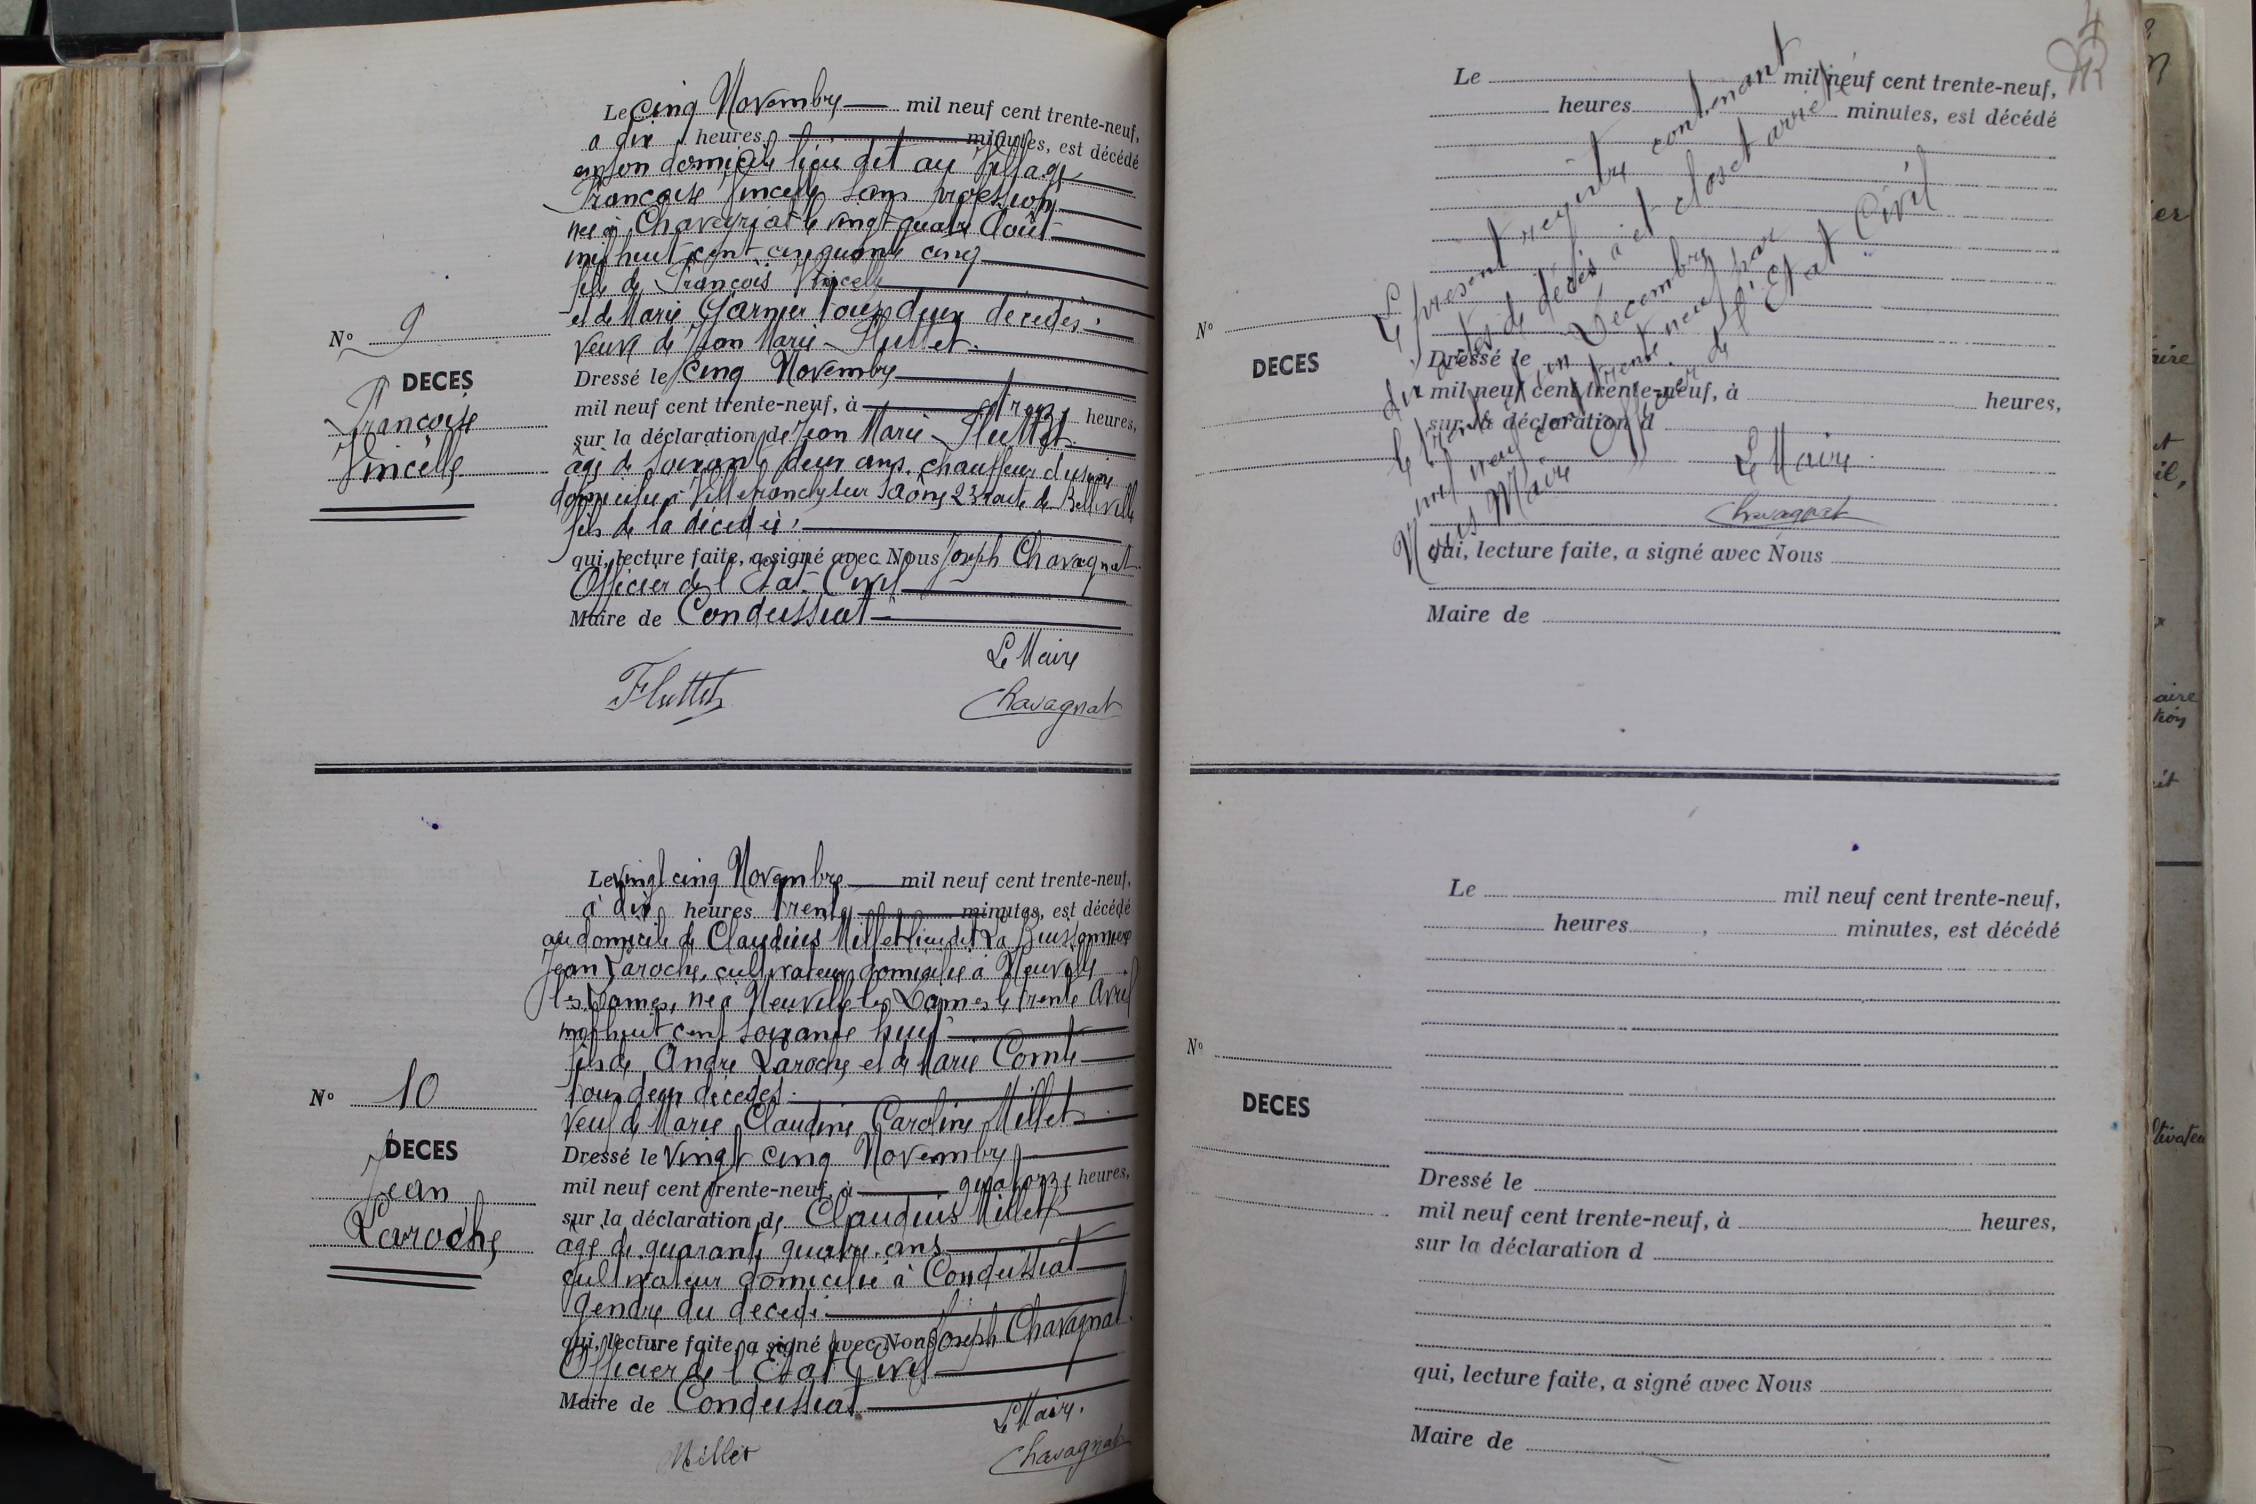 Le cinq Novembre mil neuf cent trente-neuf,
à dix heures minutes, est décédé
en son domicile lieu dit au
Françoise Vincelle sans profession
née à Chaveyriat le vingt quatre Août
mil huit cent cinquante cinq
fille de François Vincelle
et de Marie Garnier tous deux décédés.
Veuve de Jean Marie Fluttet.
N° 9
DECES
Françoise
Vincelle
Dressé le cinq Novembre
mil neuf cent trente-neuf, à treize heures,
sur la déclaration de Jean Marie Fluttet.
âgé de soixante deux ans, chauffeur d'usine
domicilié à Villefranche sur Saône 23 route de Belleville
fils de la décédée,
qui, lecture faite, a signé avec Nous Joseph Chavagnat
Officier de l'Etat-Civil
Maire de Condeissiat
Le Maire
Fluttet
Chavagnat
Le vingt cinq Novembre mil neuf cent trente-neuf,
à dix heures trente minutes, est décédé
au domicile de Claudius Millet lieu dit La Buissonniere
Jean Laroche, cultivateur domicilié à Neuville
les Dames, né à Neuville les Dames le trente Avril
mil huit cent soixante huit
fils de André Laroche et de Marie Comte
tous deux décédés.
Veuf de Marie Claudine Caroline Millet
N° 10
DECES
Jean
Laroche
Dressé le vingt cinq Novembre
mil neuf cent trente-neuf, à quatorze heures,
sur la déclaration de Claudius Millet
âgé de quarante quatre ans
cultivateur domicilié à Condeissiat
gendre du décédé.
qui, lecture faite, a signé avec Nous Joseph Chavagnat.
Officier de l'Etat Civil
Maire de Condeissiat
Le Maire.
Millet
Chavagnat
4
Le mil neuf cent trente-neuf,
heures minutes, est décédé
Le présent registre contenant
dix actes de décès a été clos et arrêté
le trente un Décembre
mil neuf cent trente neuf par
Nous Maire Officier de l'Etat Civil
N°
DECES
Dressé le
mil neuf cent trente-neuf, à heures,
sur la déclaration d
Le Maire.
Chavagnat
qui, lecture faite, a signé avec Nous
Maire de
Le mil neuf cent trente-neuf,
heures minutes, est décédé
N°
DECES
Dressé le
mil neuf cent trente-neuf, à heures,
sur la déclaration d
qui, lecture faite, a signé avec Nous
Maire de